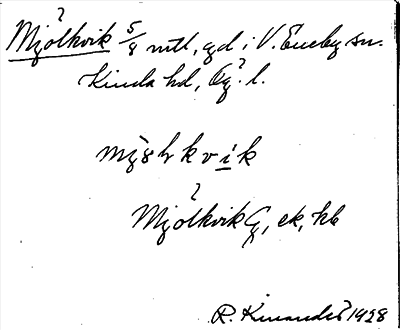 ?
Mjölkvik 5/8 mtl, gd i V. Eneby sn.
Kinda hd, Ög. l.
mjölkvik
?
Mjölkvik G, ek, kb
R. Kinander 1928